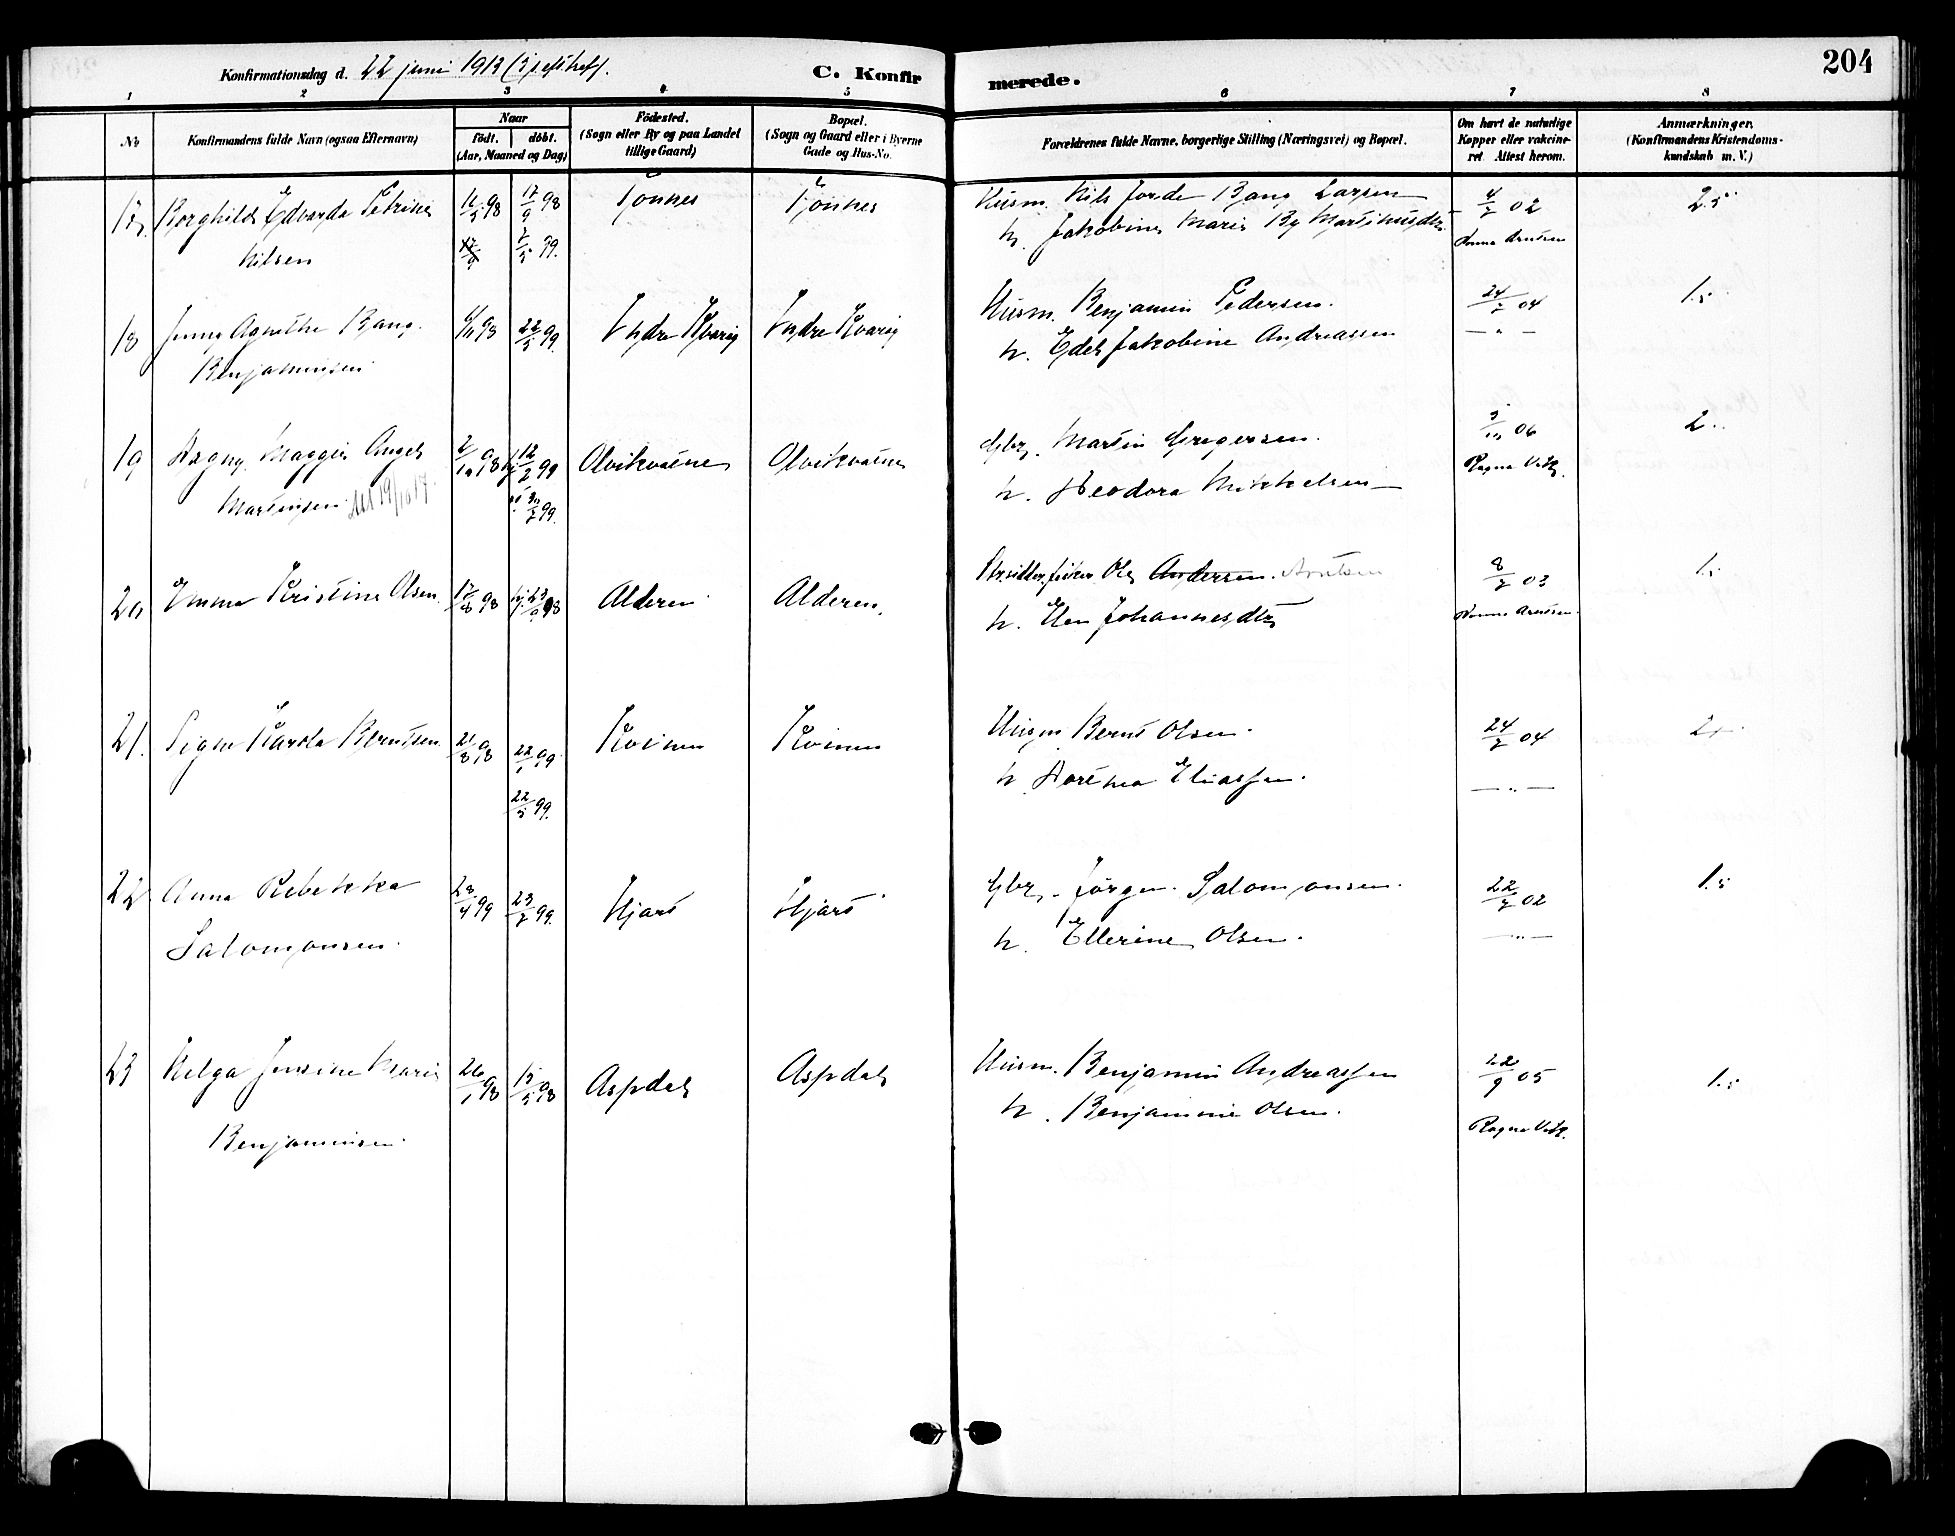 204
Konfirmationsdag d. 22 juni 1913 (3 s. eft. tref.
C. Konfirmerede.
1 2 3 4 5 6 7 8
No
Konfirmandens fulde Navn (ogsaa Efternavn)
Naar
født. døbt.
(Aar, Maaned og Dag)
Fødested.
(Sogn eller By og paa Landet
tillige Gaard)
Bopæl.
(Sogn og Gaard eller i Byerne
Gade og Hus-No.
Forældrenes fulde Navne, borgerlige Stilling (Næringsvei) og Bopæl.
Om havt de naturlige
Kopper eller vakcine-
ret. Attest herom.
Anmærkninger.
(Konfirmandens Kristendoms-
kundskab m. V.)
17. Borghild Edvarda Petrine 16/5 98 17/9 98 Tonnes Tonnes Husm. Nils Jorde Bang Larsen 4/7 02 2.5
Nilsen 7/5 99. h. Jakobine Marie By Martinusdtr. Anna Arntsen
18 Jenny Agnethe Bang 6/11 98 22/5 99. Indre Kvarøy Indre Kvarøy Husm. Benjamin Pedersen. 24/7 04 1.5
Benjaminsen h. Edel Jakobine Andreassen — " —
19 Dagny Maggie Angel 2/10 98 hj 12/2 99 Olvikvatne Olvikvatne Gbr. Martin Gregersen. 3/10 06 2.
Martinsen h. Teodora Mikkelsen Ragna Vik.
20 Emma Kristine Olsen 17/8 98 hj. 23/9 98 Alderen Alderen. Strsidder, fisker Ole Andersen. Arntsen 8/7 03 1.5
h. Elen Johannesdtr Anna Arntsen
21. Signe Karola Berntsen 21/8 98 22/1 99 Kvinen Kvinen Husm Bernt Olsen. 24/7 04 2.
22/5 99. h. Dorthea Eliassen. — " —
22 Anna Rebekka 23/4 99 23/7 99. Hjart Hjart Gbr. Jørgen Salomonsen. 22/7 02 1.5
Salomonsen. h. Ellerine Olsen. — " —
23 Helga Jensine Marie 26/1 98 15/5 98 Aspdal Aspdal Husm. Benjamin Andreassen 22/9 05 1.5
Benjaminsen. h. Benjamine Olsen. Ragna Vik.